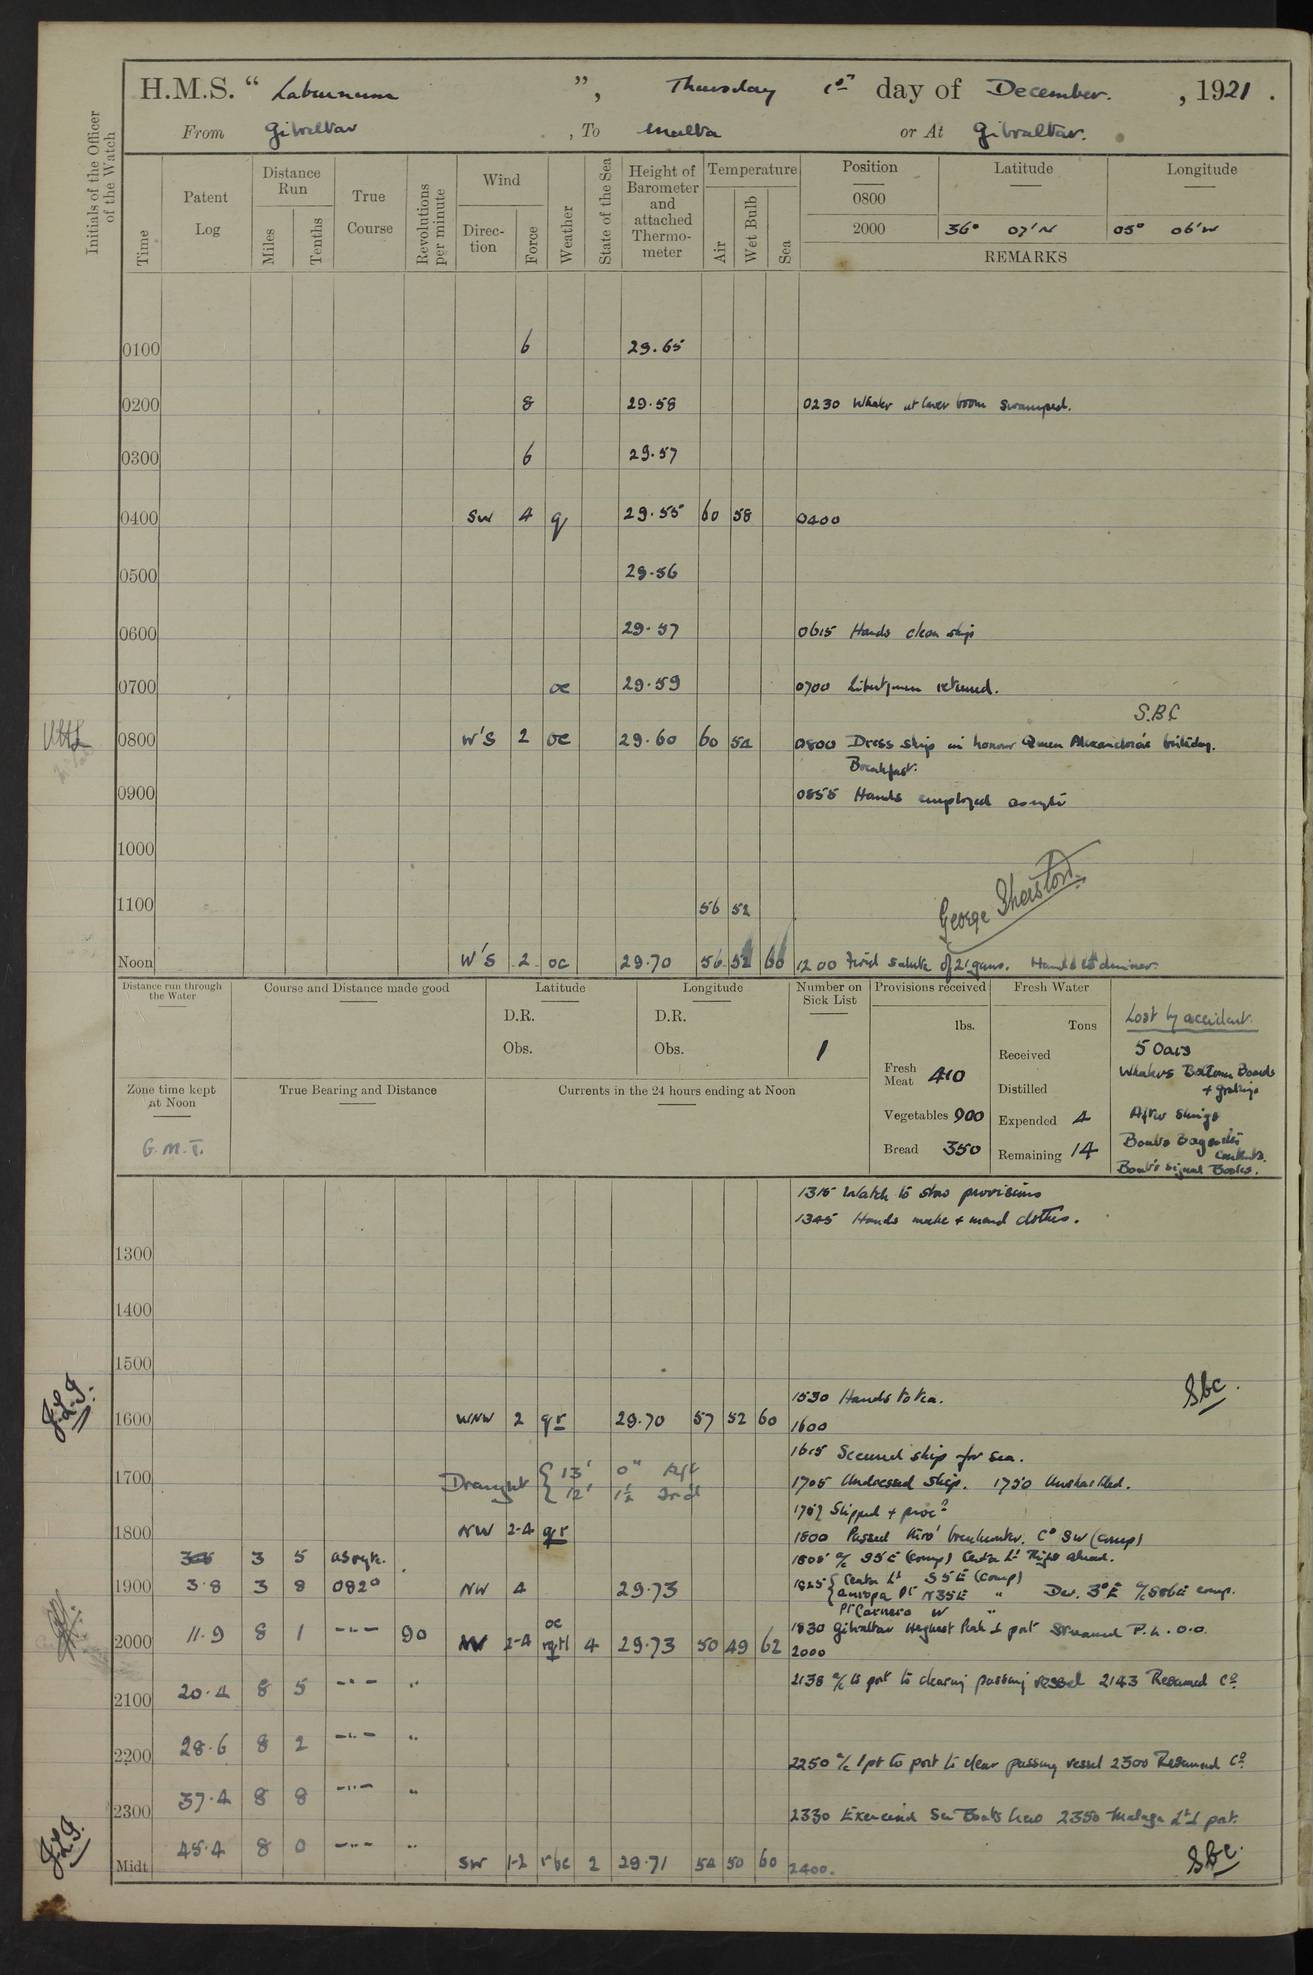 H.M.S. “ Laburnum ”, Thursday 1st day of December. , 1921 .
From Gibraltar , To Malta or At Gibraltar.
Initials of the Officer of the Watch
Time
Patent Log
Distance Run
Miles
Tenths
True Course
Revolutions per minute
Wind
Direction
Force
Weather
State of the Sea
Height of Barometer and attached Thermometer
Temperature
Air
Wet Bulb
Sea
Position Latitude Longitude
0800
2000 36° 07' N 05° 06' W
REMARKS
0100 6 29.65
0200 8 29.58 0230 Whaler at lower boom swamped.
0300 6 29.57
0400 SW 4 q 29.55 60 58 0400
0500 29.56
0600 29.57 0615 Hands clean ship
0700 oc 29.59 0700 Libertymen returned.
S.B.C
0800 W'S 2 oc 29.60 60 54 0800 Dress ship in honour Queen Alexandra's birthday.
Breakfast.
0900 0855 Hands employed as req'te
1000
1100 56 52
George Sherston
Noon W'S 2 oc 29.70 56 52 60 1200 Fired salute of 21 guns. Hands to dinner.
Distance run through the Water
Course and Distance made good
Latitude
D.R.
Obs.
Longitude
D.R.
Obs.
Number on Sick List
1
Provisions received
lbs.
Fresh Meat 410
Vegetables 900
Bread 350
Fresh Water
Tons
Received
Distilled
Expended 4
Remaining 14
Lost by accident.
5 Oars
Whalers Bottom Boards
+ gratings
After slings
Boats Bag &
contents.
Boat's signal Books.
Zone time kept at Noon
G.M.T.
True Bearing and Distance
Currents in the 24 hours ending at Noon
1315 Watch to stow provisions
1345 Hands make + mend clothes.
1300
1400
1500
1530 Hands to tea. SBC.
1600 WNW 2 qr 29.70 57 52 60 1600
1615 Secured ship for sea.
1700 Draught { 13' 0" Aft
{ 12' 1½ For'd
1705 Undressed ship. 1750 Unshackled.
1757 Slipped + proc'd
1800 NW 2-4 qr 1800 Passed breakwater. Co SW (comp)
3.5 3 5 as req. 1808 a/c S5E (comp) Ceuta Lt Right ahead.
1900 3.8 3 8 082° NW 4 29.73 1825 { Ceuta Lt S5E (comp)
{ Europa Pt N35E " Dev. 3°E a/c S86E comp.
Pt Carnero W "
1830 Gibraltar Highest Peak ⊥ port Streamed P.L. 0.0.
2000 11.9 8 1 -"- 90 NW 2-4 oc 4 29.73 50 49 62 2000
2100 20.4 8 5 -"- " 2138 a/c to port to clearing passing vessel 2143 Resumed Co.
2200 28.6 8 2 -"- "
2250 a/c 1pt to port to clear passing vessel 2300 Resumed Co.
2300 37.4 8 8 -"- "
2330 Exercised Sea Boats Crew 2350 Malaga Lt ⊥ port.
45.4 8 0 -"- "
Midt. SW 1-2 rbc 2 29.71 54 50 60 2400. SBC.